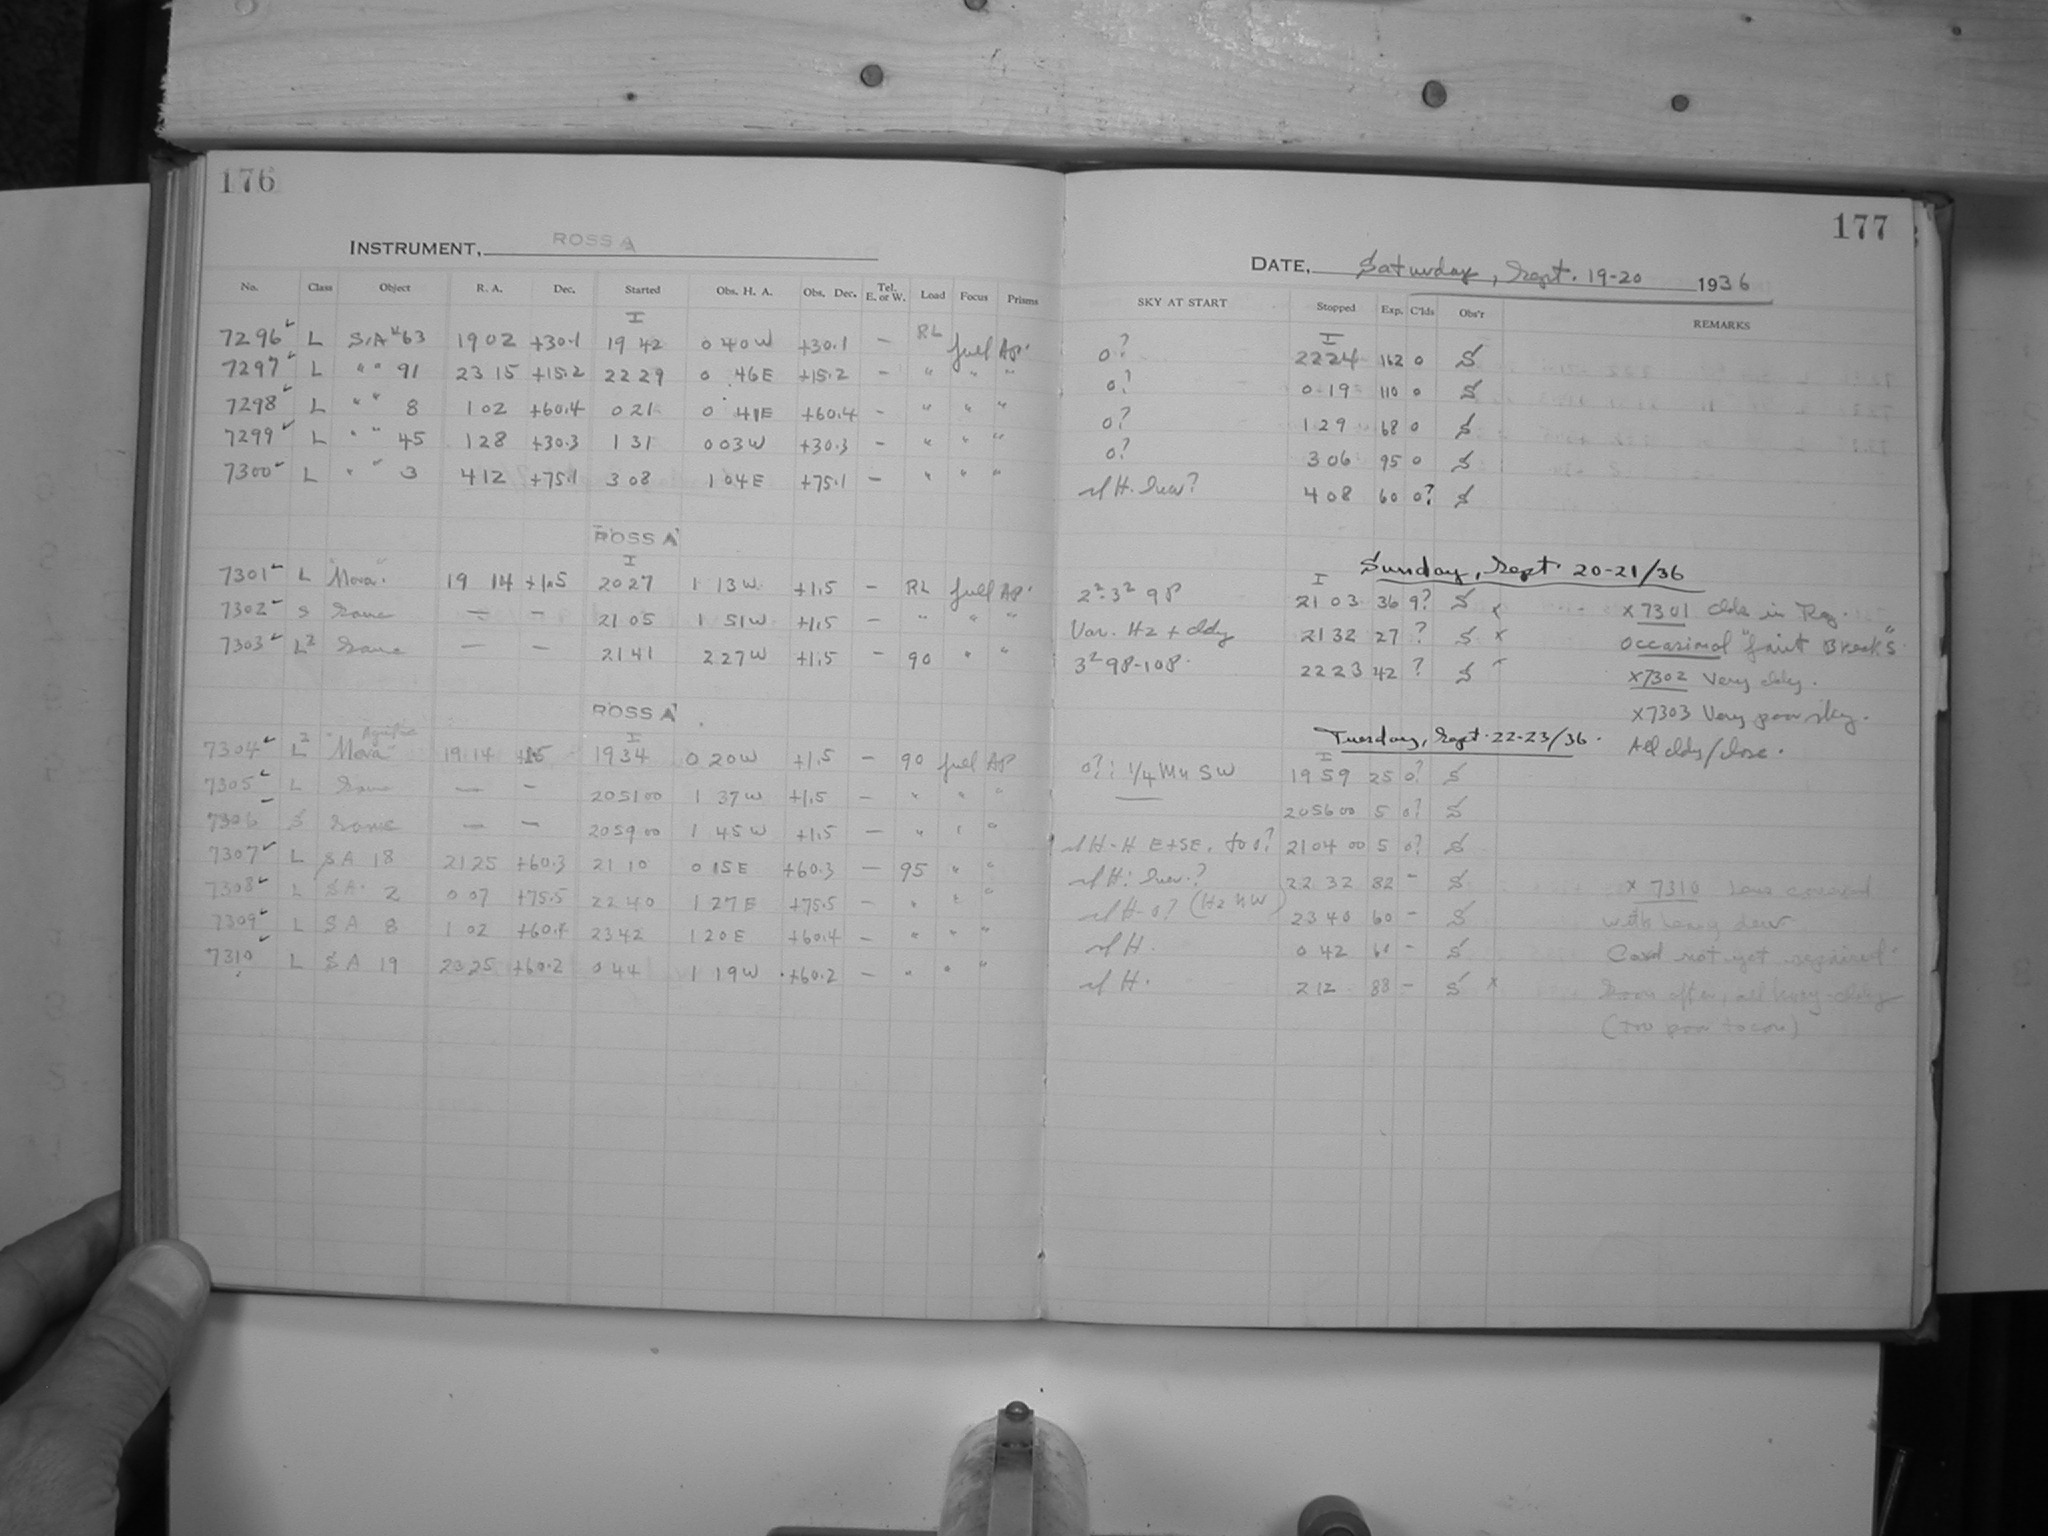 176
INSTRUMENT, ROSS A
No. Class Object R. A. Dec. Started Obs. H. A. Obs. Dec. Tel. E. or W. Load Focus Prisms
I
7296 L S.A 63 19 02 +30.1 19 42 0 40 W +30.1 — RL full AP.
7297 L " " 91 23 15 +15.2 22 29 0 46 E +15.2 — " " "
7298 L " " 8 1 02 +60.4 0 21 0 41 E +60.4 — " " "
7299 L " " 45 1 28 +30.3 1 31 0 03 W +30.3 — " " "
7300 L " " 3 4 12 +75.1 3 08 1 04 E +75.1 — " " "
ROSS A
I
7301 L "Nova" 19 14 +1.5 20 27 1 13 W +1.5 — RL full AP.
7302 S Same — — 21 05 1 51 W +1.5 — " " "
7303 L² Same — — 21 41 2 27 W +1.5 — 90 " "
ROSS A
I
Aquilae
7304 L² "Nova" 19 14 +1.5 19 34 0 20 W +1.5 — 90 full AP
7305 L Same — — 20 51 00 1 37 W +1.5 — " " "
7306 S Same — — 20 59 00 1 45 W +1.5 — " " "
7307 L SA 18 21 25 +60.3 21 10 0 15 E +60.3 — 95 " "
7308 L SA. 2 0 07 +75.5 22 40 1 27 E +75.5 — " " "
7309 L SA 8 1 02 +60.4 23 42 1 20 E +60.4 — " " "
7310 L SA 19 23 25 +60.2 0 44 1 19 W +60.2 — " " "
177
DATE, Saturday, Sept. 19-20 1936
SKY AT START Stopped Exp. C'lds Obs'r REMARKS
I
0? 22 24 162 0 S
0? 0 19 110 0 S
0? 1 29 68 0 S
0? 3 06 95 0 S
sl H. 4 08 60 0? S
Sunday, Sept 20-21/36
I
2²-3² 9P 21 03 36 9? S x x 7301 clds in Reg.
Var. Hz + cldy 21 32 27 ? S x Occasional "faint Breaks"
3² 9P-10P. 22 23 42 ? S x7302 Very cldy.
x7303 Very poor sky.
Tuesday, Sept. 22-23/36. All cldy/close.
I
0?: 1/4 Mn SW 19 59 25 0? S
20 56 00 5 0? S
sl H-H E+SE. to 0? 21 04 00 5 0? S
sl H: 22 32 82 — S x 7310 Lens covered
sl H-0? (Hz NW) 23 40 60 — S with heavy dew
sl H. 0 42 60 — S Cord not yet repaired
sl H. 2 12 88 — S x Soon after, all hvy-cldy
(Too poor to con)